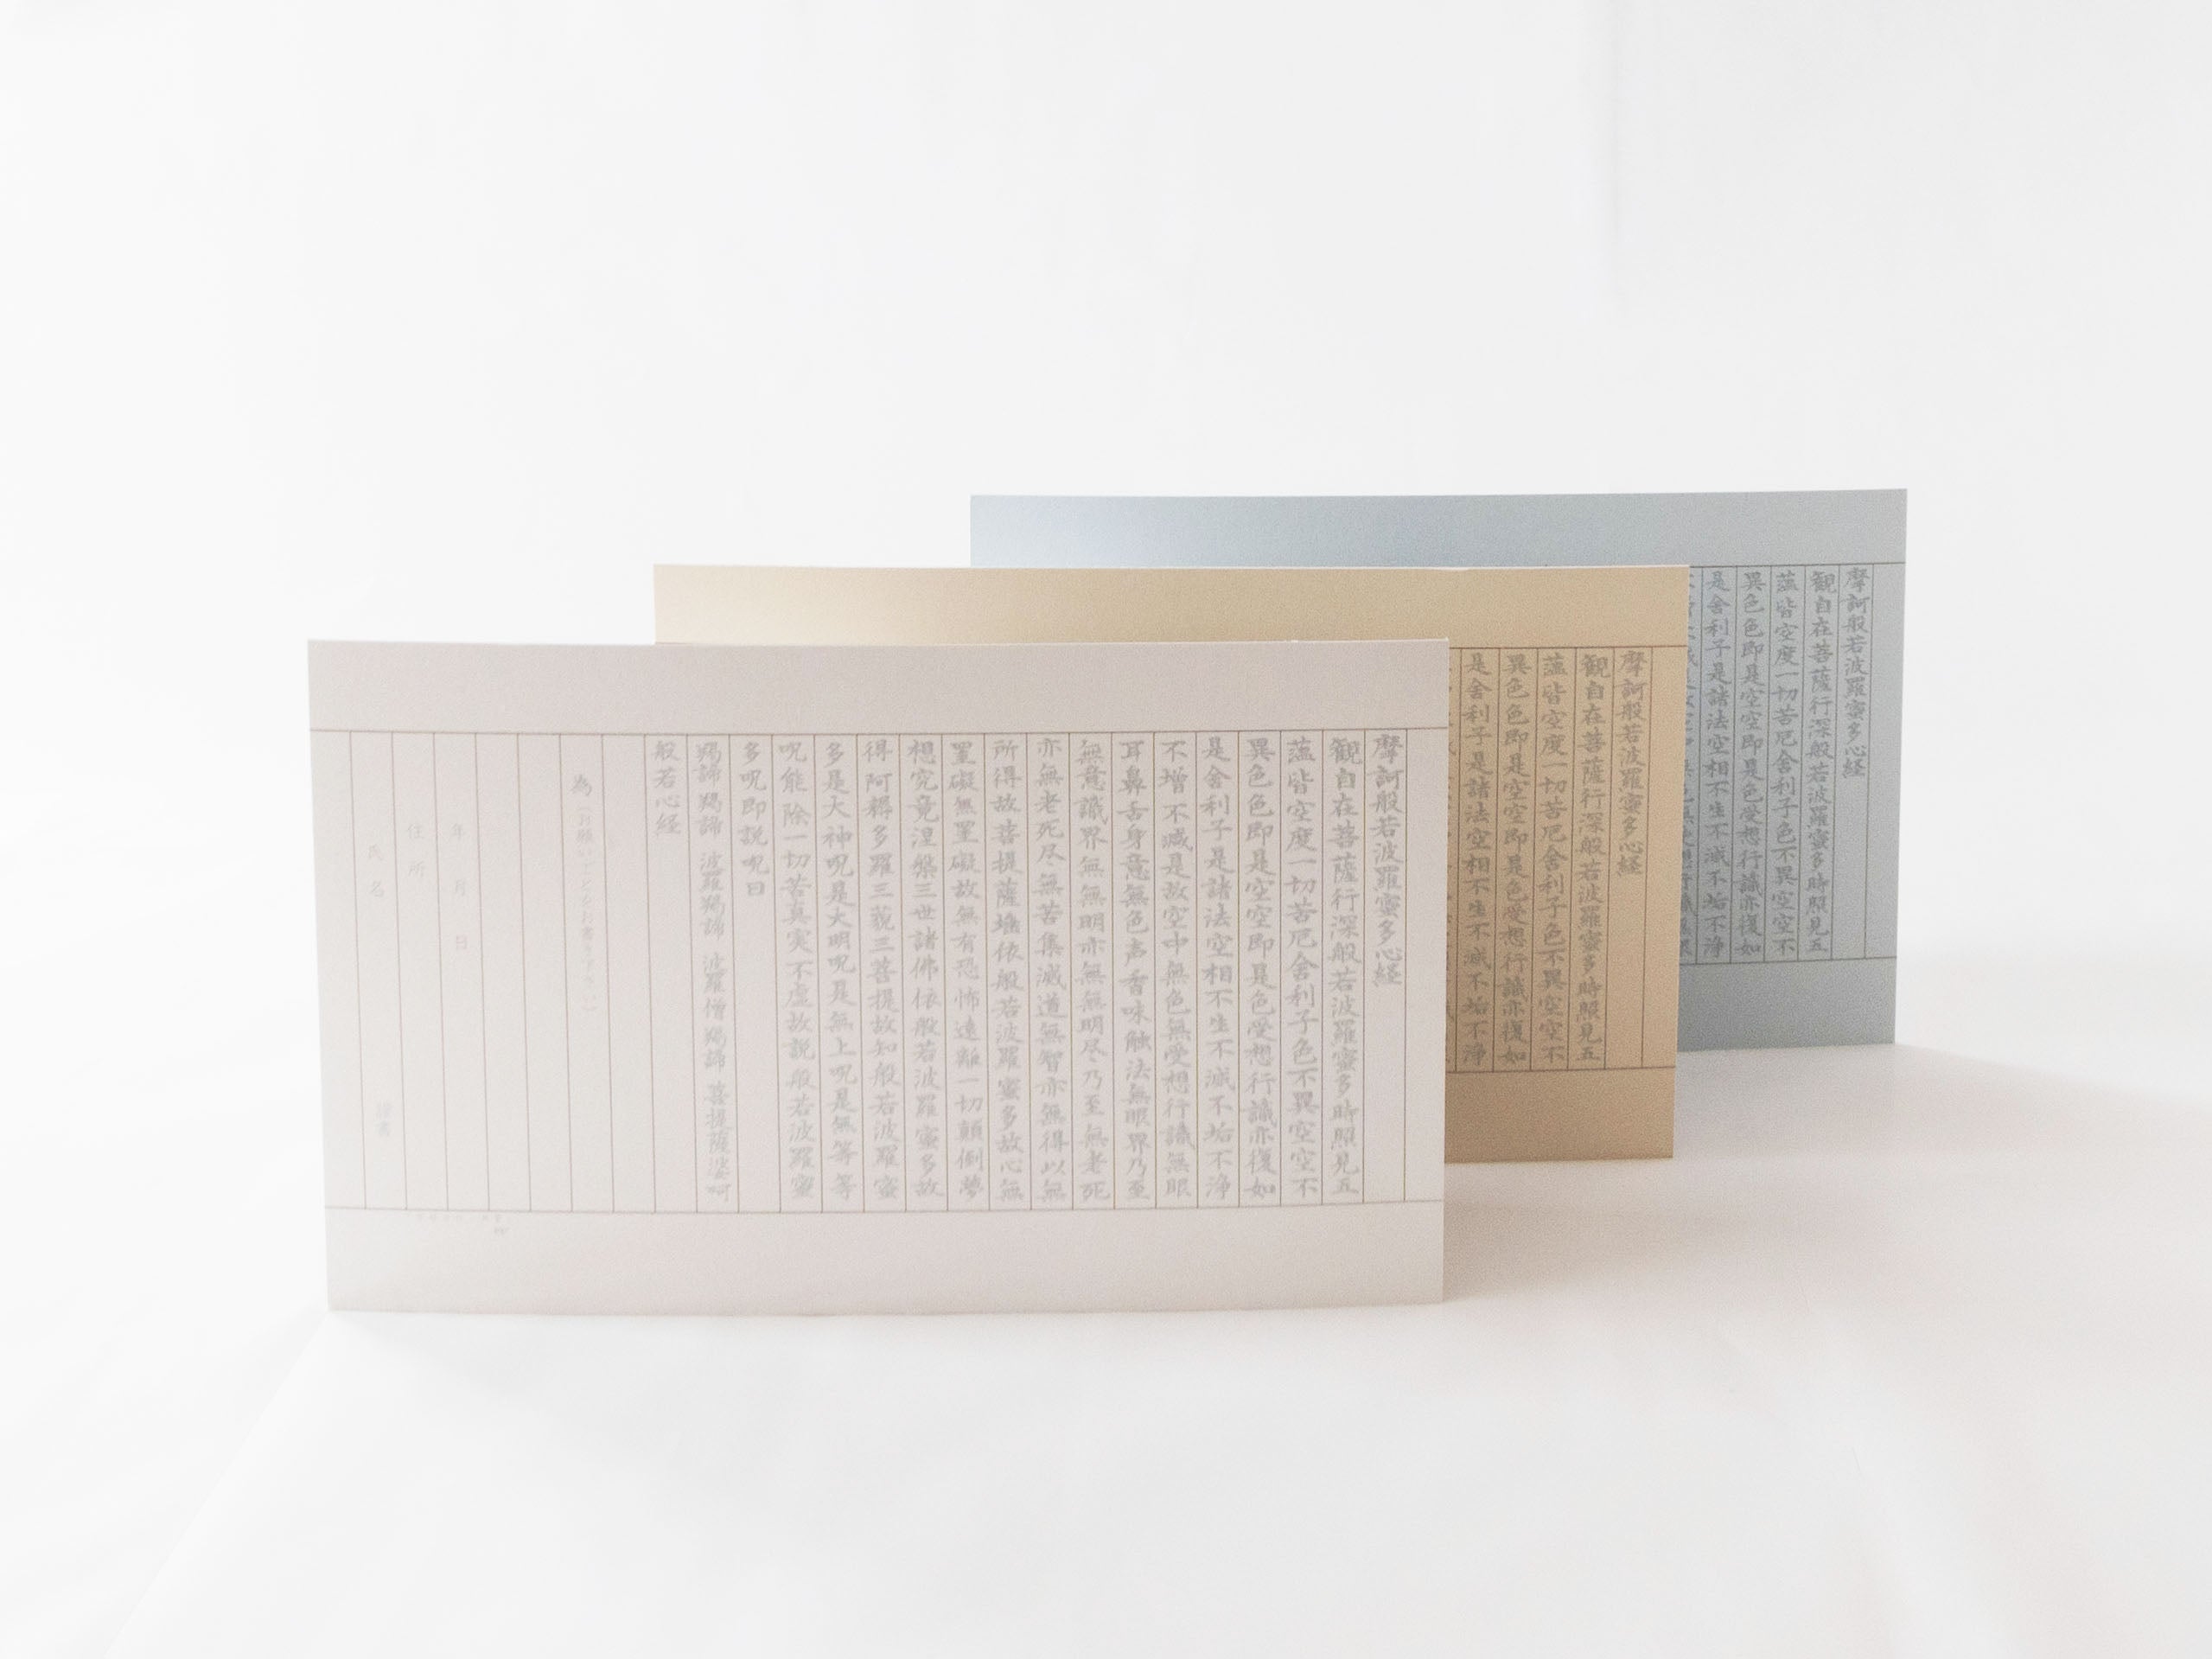 摩訶般若波羅蜜多心経
観自在菩薩行深般若波羅蜜多時照見五
蘊皆空度一切苦厄舎利子色不異空空不
異色色即是空空即是色受想行識亦復如
是舎利子是諸法空相不生不滅不垢不浄
不増不減是故空中無色無受想行識無眼
耳鼻舌身意無色声香味触法無眼界乃至
無意識界無無明亦無無明尽乃至無老死
亦無老死尽無苦集滅道無智亦無得以無
所得故菩提薩埵依般若波羅蜜多故心無
罣礙無罣礙故無有恐怖遠離一切顛倒夢
想究竟涅槃三世諸佛依般若波羅蜜多故
得阿耨多羅三藐三菩提故知般若波羅蜜
多是大神呪是大明呪是無上呪是無等等
呪能除一切苦真実不虚故説般若波羅蜜
多呪即説呪曰
羯諦 羯諦 波羅羯諦 波羅僧羯諦 菩提薩婆訶
般若心経
為（お願いごとをお書き下さい）
年 月 日
住所
氏名 謹書
摩訶般若波羅蜜多心経
観自在菩薩行深般若波羅蜜多時照見五
蘊皆空度一切苦厄舎利子色不異空空不
異色色即是空空即是色受想行識亦復如
是舎利子是諸法空相不生不滅不垢不浄
摩訶般若波羅蜜多心経
観自在菩薩行深般若波羅蜜多時照見五
蘊皆空度一切苦厄舎利子色不異空空不
異色色即是空空即是色受想行識亦復如
是舎利子是諸法空相不生不滅不垢不浄